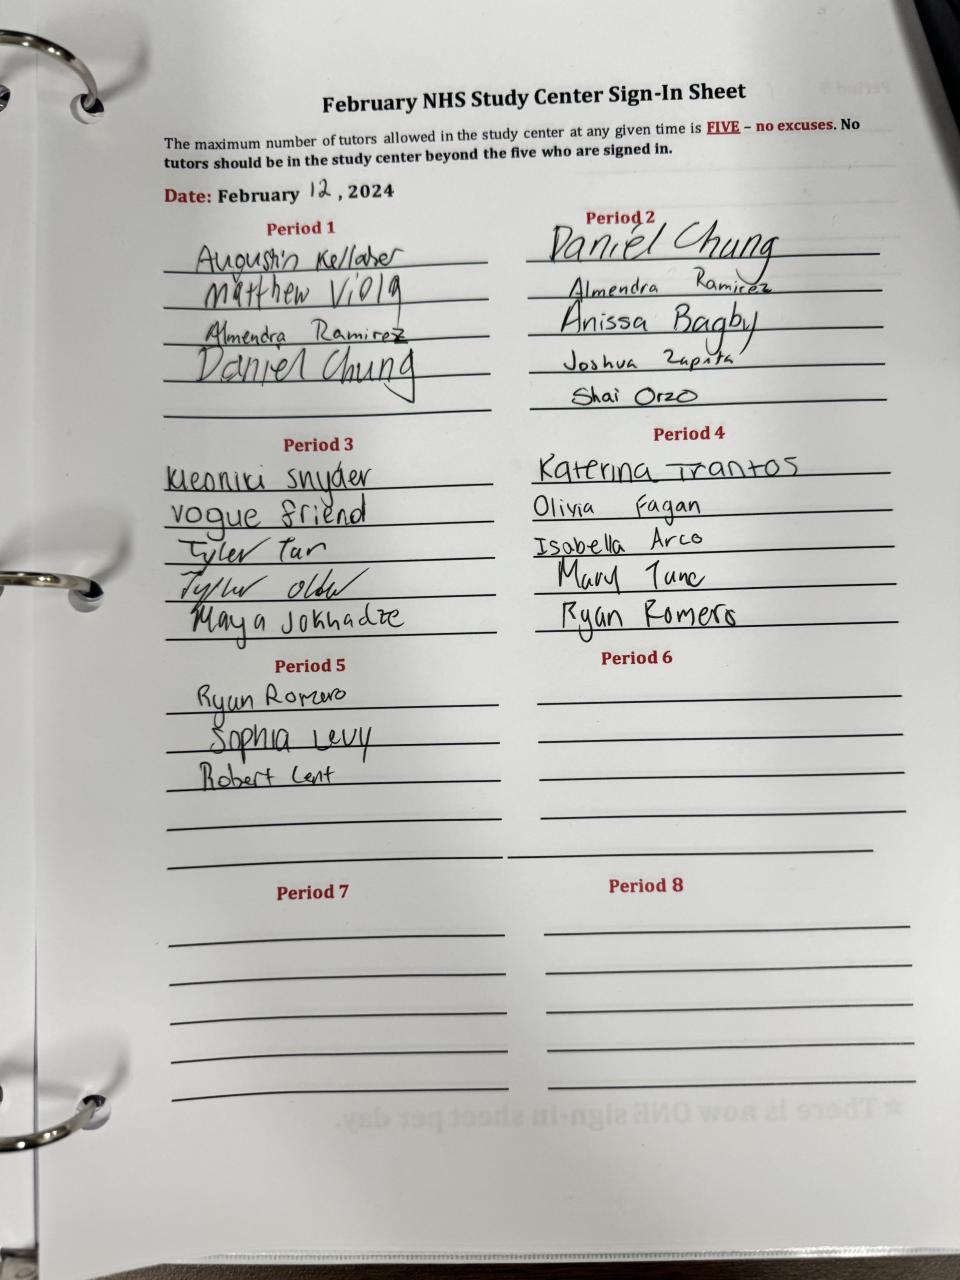 February NHS Study Center Sign-In Sheet
The maximum number of tutors allowed in the study center at any given time is FIVE – no excuses. No
tutors should be in the study center beyond the five who are signed in.
Date: February 12, 2024
Period 1
Augustin Kellaher
Matthew Viola
Almendra Ramirez
Daniel Chung
Period 2
Daniel Chung
Almendra Ramirez
Anissa Bagby
Joshua Zapata
Shai Orzo
Period 3
Kleoniki Snyder
vogue friend
Tyler Tan
Tyler
Maya Jokhadze
Period 4
Katerina Trantos
Olivia Fagan
Isabella Arco
Mary Tanc
Ryan Romero
Period 5
Ryan Romero
Sophia Levy
Robert Lent
Period 6
Period 7
Period 8
* There is now ONE sign-in sheet per day.